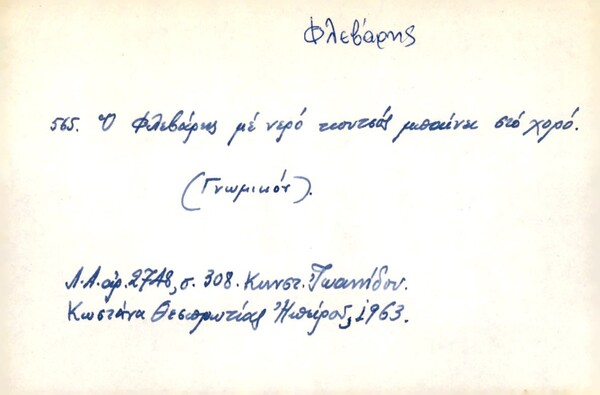 Φλεβάρης
565. Ὁ Φλεβάρης μέ νερό κουτσός μπαίνει στό χορό.
(Γνωμικόν).
Λ.Α. ἀρ. 2748, σ. 308. Κωνστ. Ἰωαννίδου.
Κωστάνα Θεσπρωτίας Ἠπείρου, 1963.